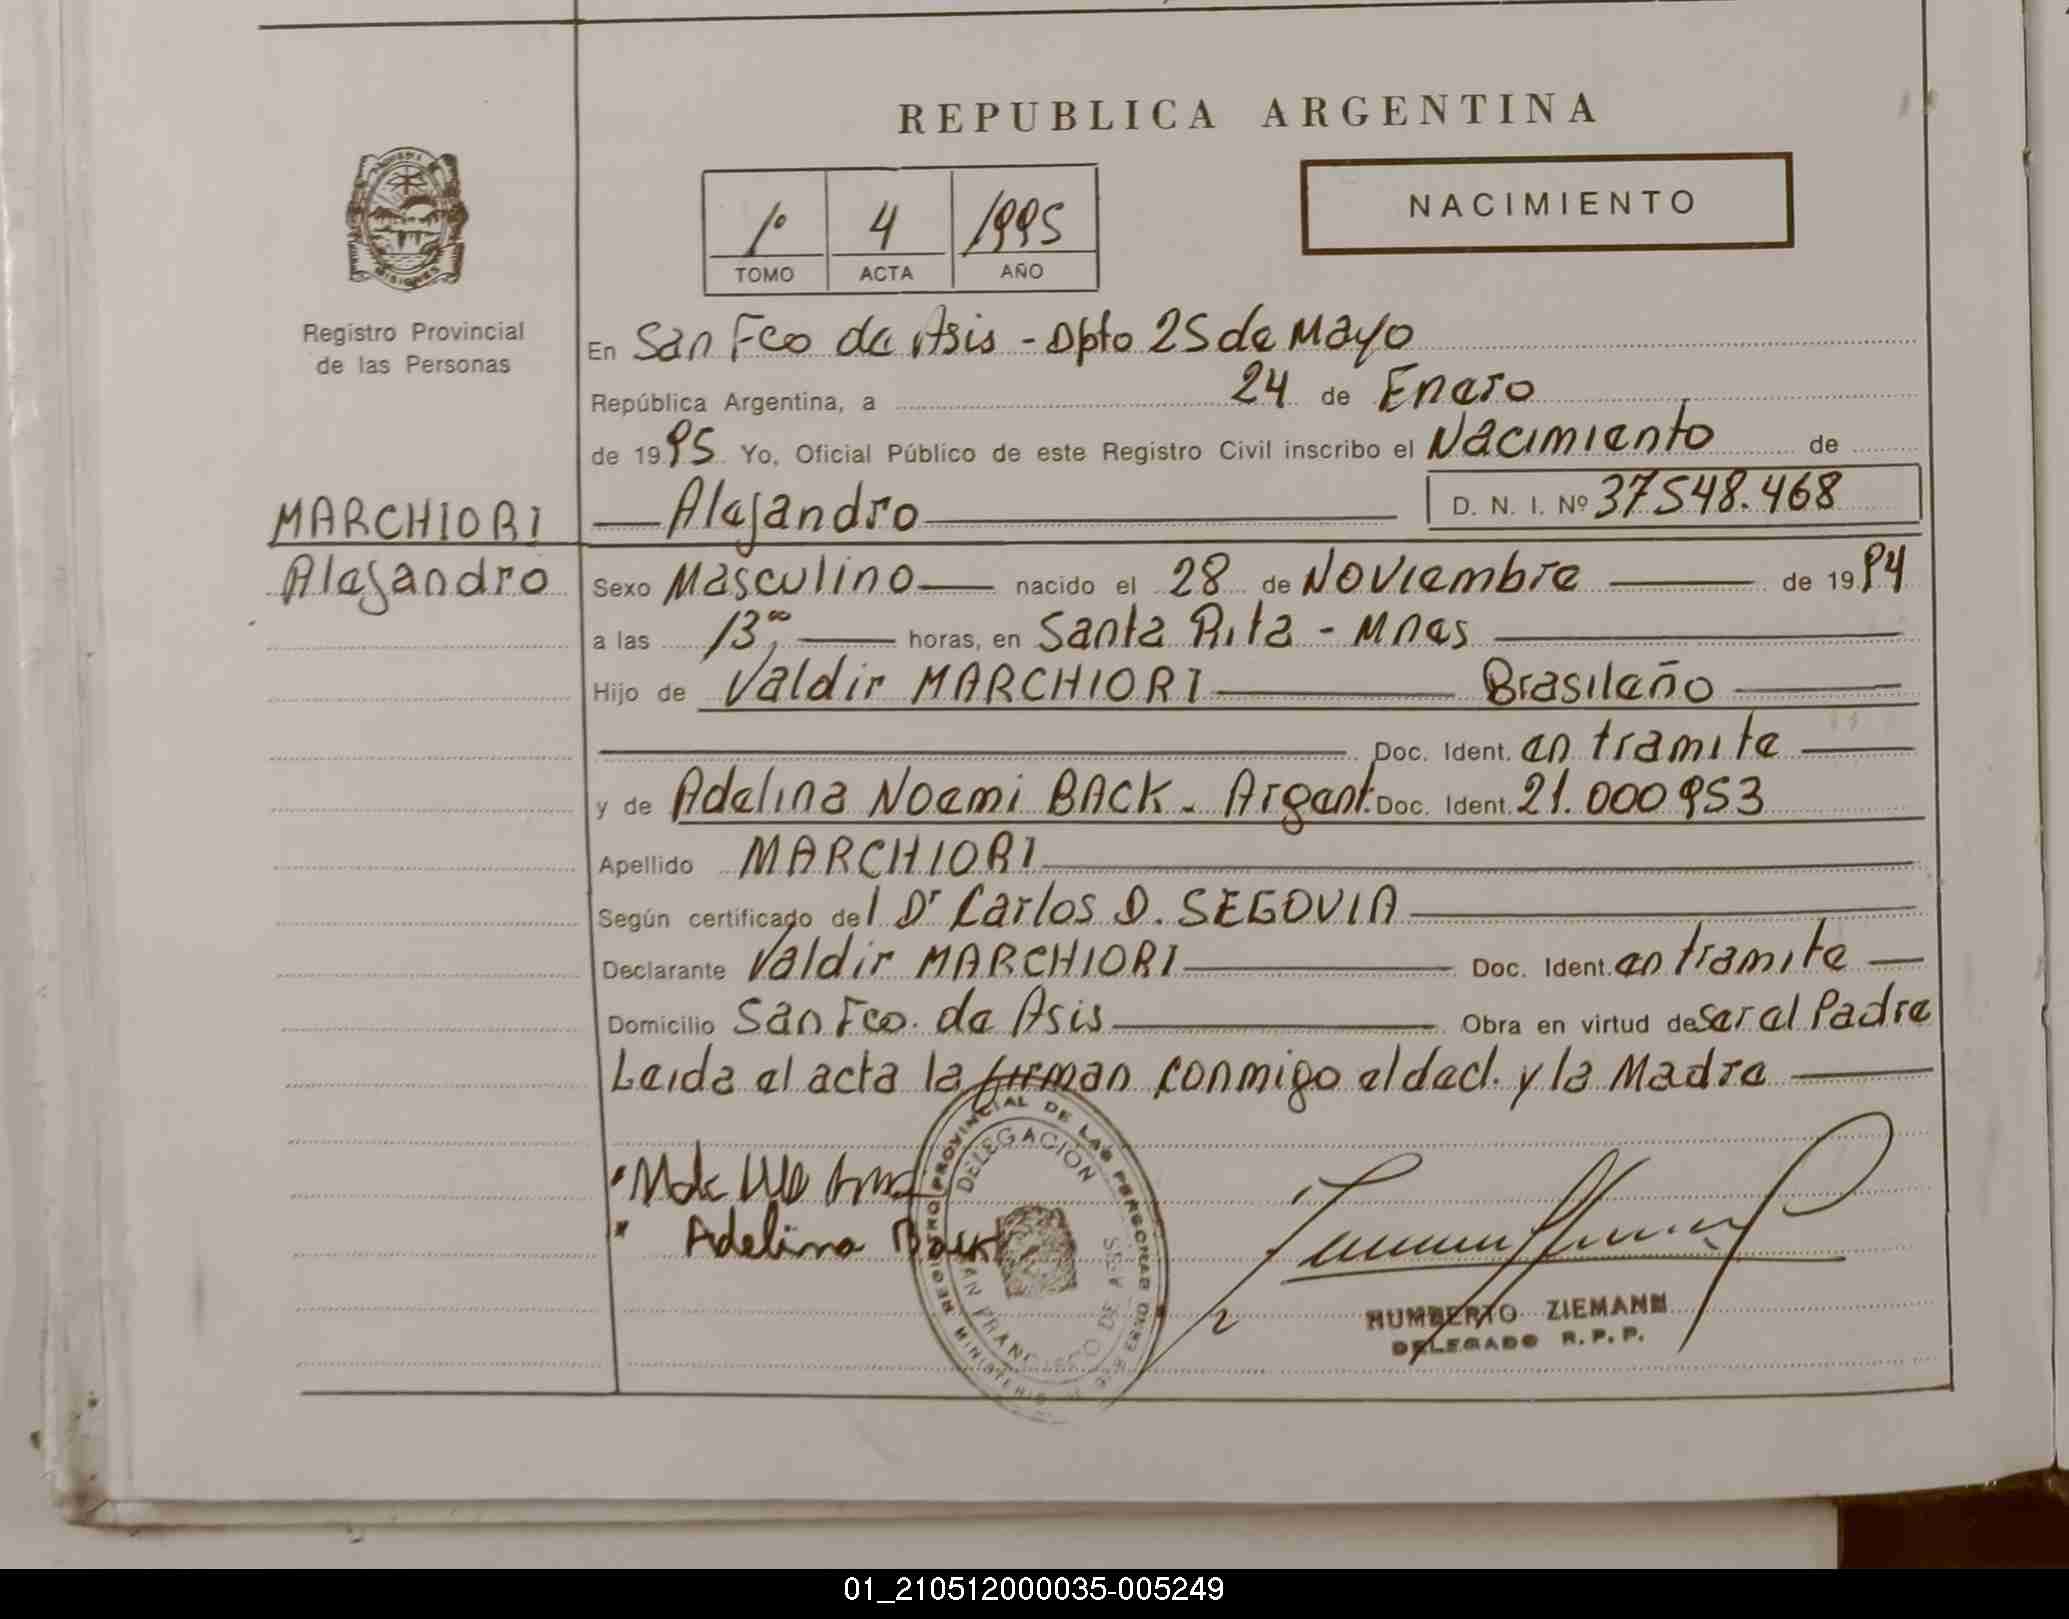 REPUBLICA ARGENTINA
NACIMIENTO
1º 4 1995
TOMO ACTA AÑO
MISIONES
Registro Provincial
de las Personas
En San Fco de Asis - Dpto 25 de Mayo
República Argentina, a 24 de Enero
de 1995 Yo, Oficial Público de este Registro Civil inscribo el Nacimiento de
Alejandro D. N. I. Nº 37548.468
MARCHIORI
Alejandro
Sexo Masculino nacido el 28 de Noviembre de 1994
a las 13,00 horas, en Santa Rita - Mnes
Hijo de Valdir MARCHIORI Brasileño
Doc. Ident. en tramite
y de Adelina Noemi BACK - Argent. Doc. Ident. 21.000953
Apellido MARCHIORI
Según certificado del Dr Carlos D. SEGOVIA
Declarante Valdir MARCHIORI Doc. Ident. en tramite
Domicilio San Fco. de Asis Obra en virtud de ser el Padre
Leida el acta la firman conmigo el decl. y la Madre
Adelina Back
REGISTRO PROVINCIAL DE LAS PERSONAS
DELEGACION
SAN FRANCISCO DE ASIS
MINISTERIO DE
HUMBERTO ZIEMANN
DELEGADO R. P. P.
01_210512000035-005249